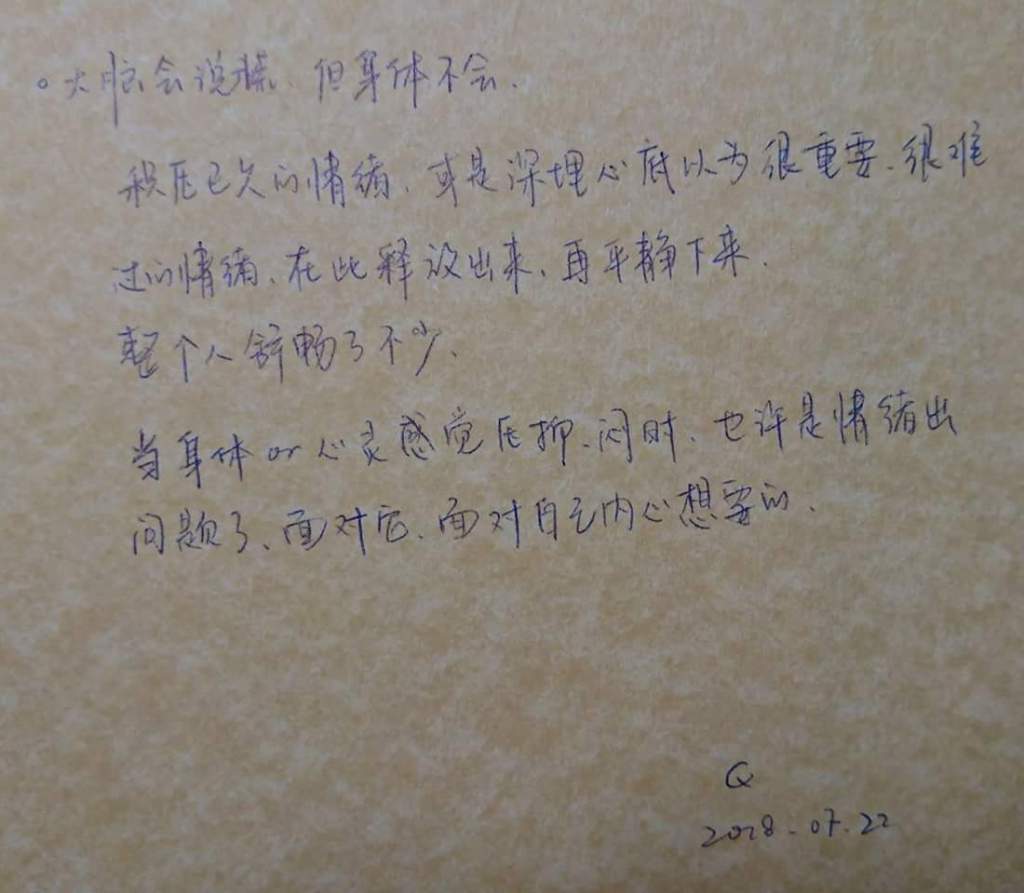 。大脑会说谎、但身体不会.
积压已久的情绪、或是深埋心底以为很重要、很难
过的情绪、在此释放出来、再平静下来.
整个人舒畅了不少、
当身体or心灵感觉压抑、闷时、也许是情绪出
问题了、面对它、面对自己内心想要的、
Q
2018.07.22